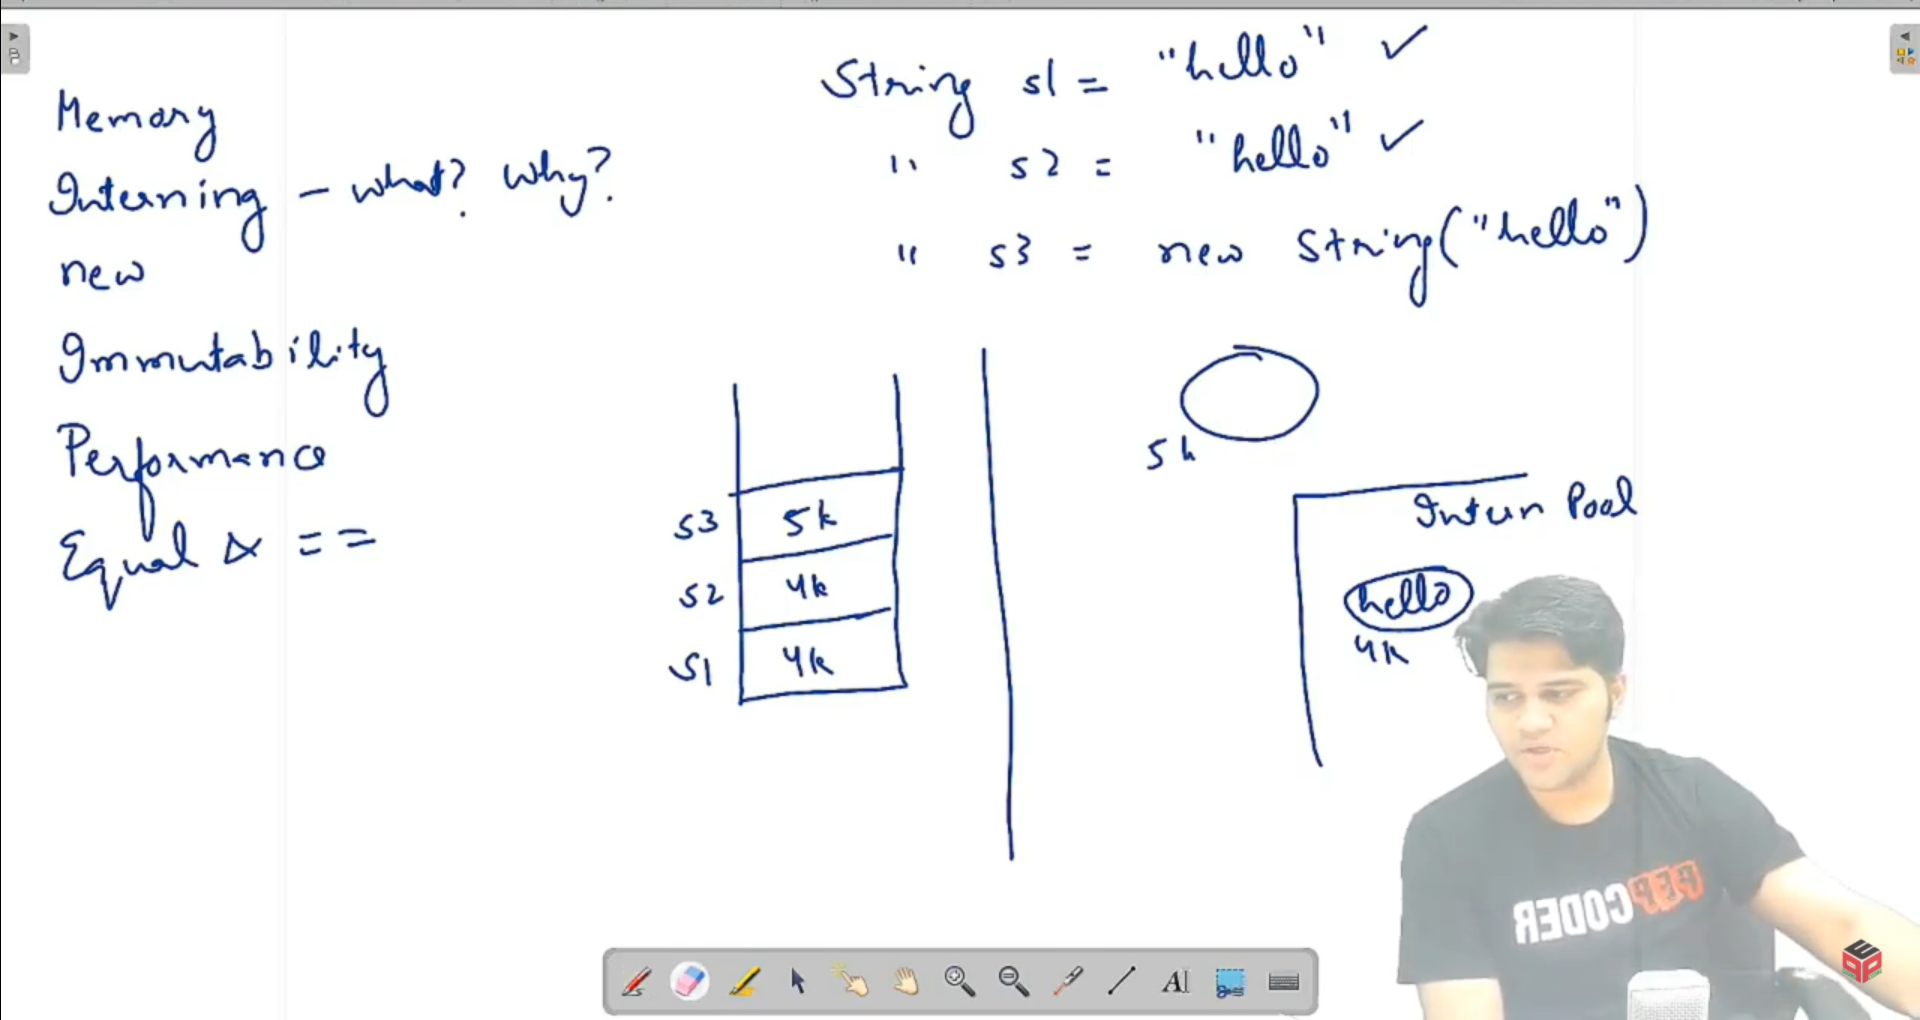 Memory
Interning - what? why?
new
Immutability
Performance
Equal & ==
String s1 = "hello" ✓
" s2 = "hello" ✓
" s3 = new String("hello")
s3 5k
s2 4k
s1 4k
5k
Intern Pool
hello
4k
PEPCODER
AI